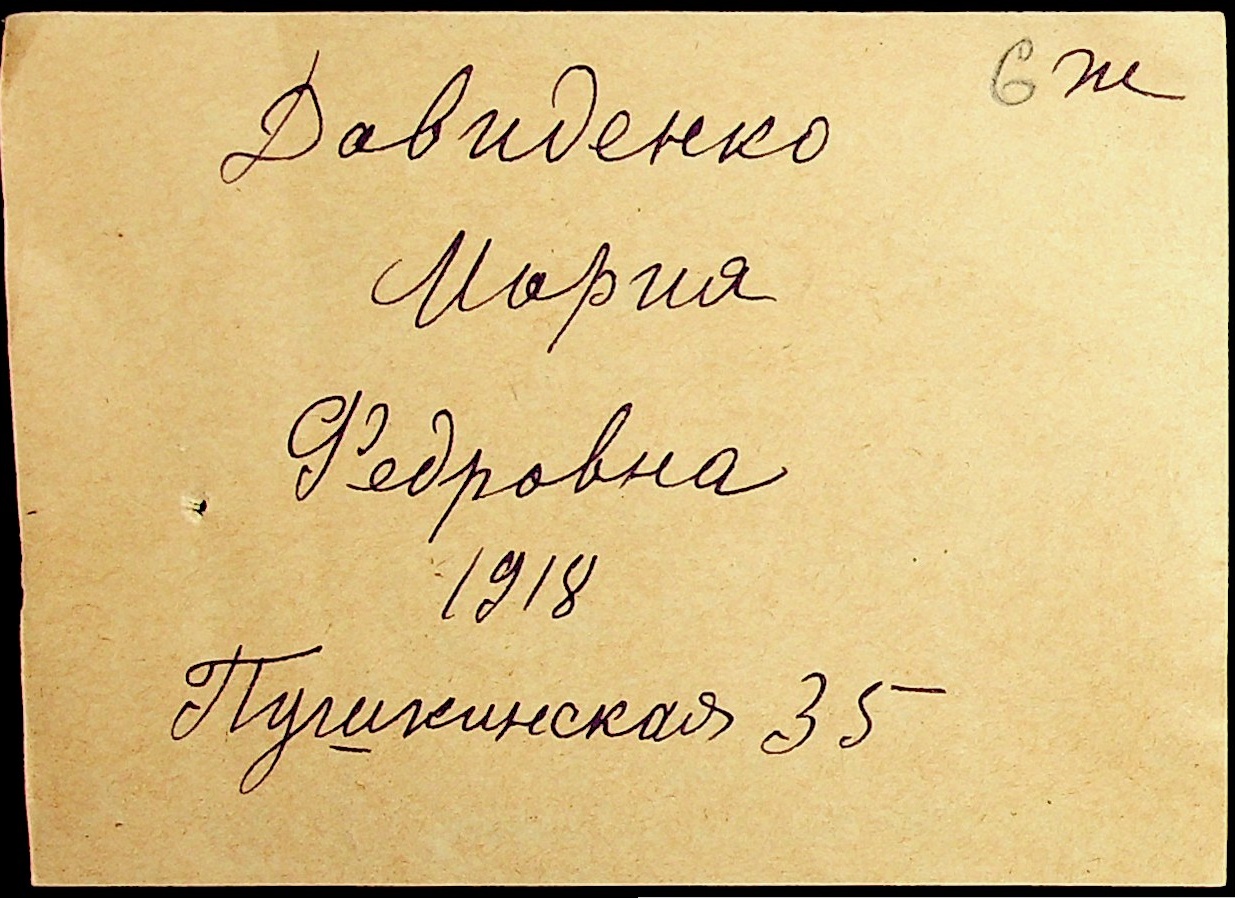 6 ж
Давиденко
Мария
Федровна
1918
Пушкинская 35